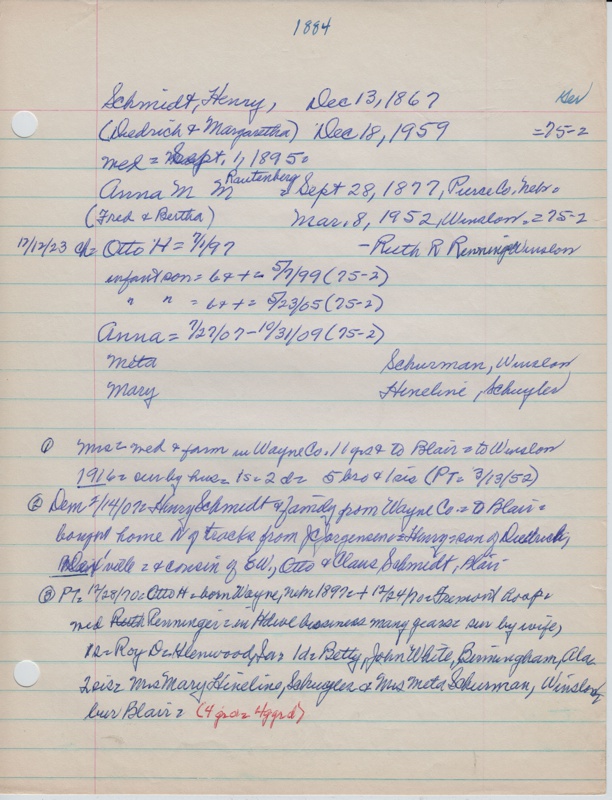 1884
Schmidt, Henry, Dec 13, 1867 Ger
(Diedrich & Margaretha) Dec 18, 1959 =75-2
med = Sept. 1, 1895.
Anna M M Rautenberg = Sept 28, 1877, Pierce Co, Nebr.
(Fred & Bertha) Mar. 8, 1952, Winslow. = 75-2
12/12/23 ch= Otto H = 7/1/97 - Ruth R Renninger Winslow
infant son = b & + = 5/7/99 (75-2)
" " = b & + = 5/23/05 (75-2)
Anna = 7/27/07 - 10/31/09 (75-2)
Meta Schurman, Winslow
Mary Hineline, Schuyler
① Mrs = med & farm in Wayne Co. 11 yrs & to Blair = to Winslow
1916 = sur by hus = 1s = 2d = 5 bro & 1 sis (PT = 3/13/52)
② Dem 2/14/07 = Henry Schmidt & family from Wayne Co = to Blair =
bought home N of tracks from J C Jorgensen = Henry = son of Diedrich,
ville = & cousin of EW, Otto & Claus Schmidt, Blair
③ PT = 12/28/70 = Otto H = born Wayne, 1897 = + 12/24/70 = Fremont &
med Ruth Renninger = in business many years = sur by wife,
1s = Roy D = Glenwood, 1d = Betty, John White, Birmingham, Ala
2 sis = Mrs Mary Hineline, Schuyler & Mrs Meta Schurman, Winslow,
bur Blair = (4 grd = 4 ggrd)